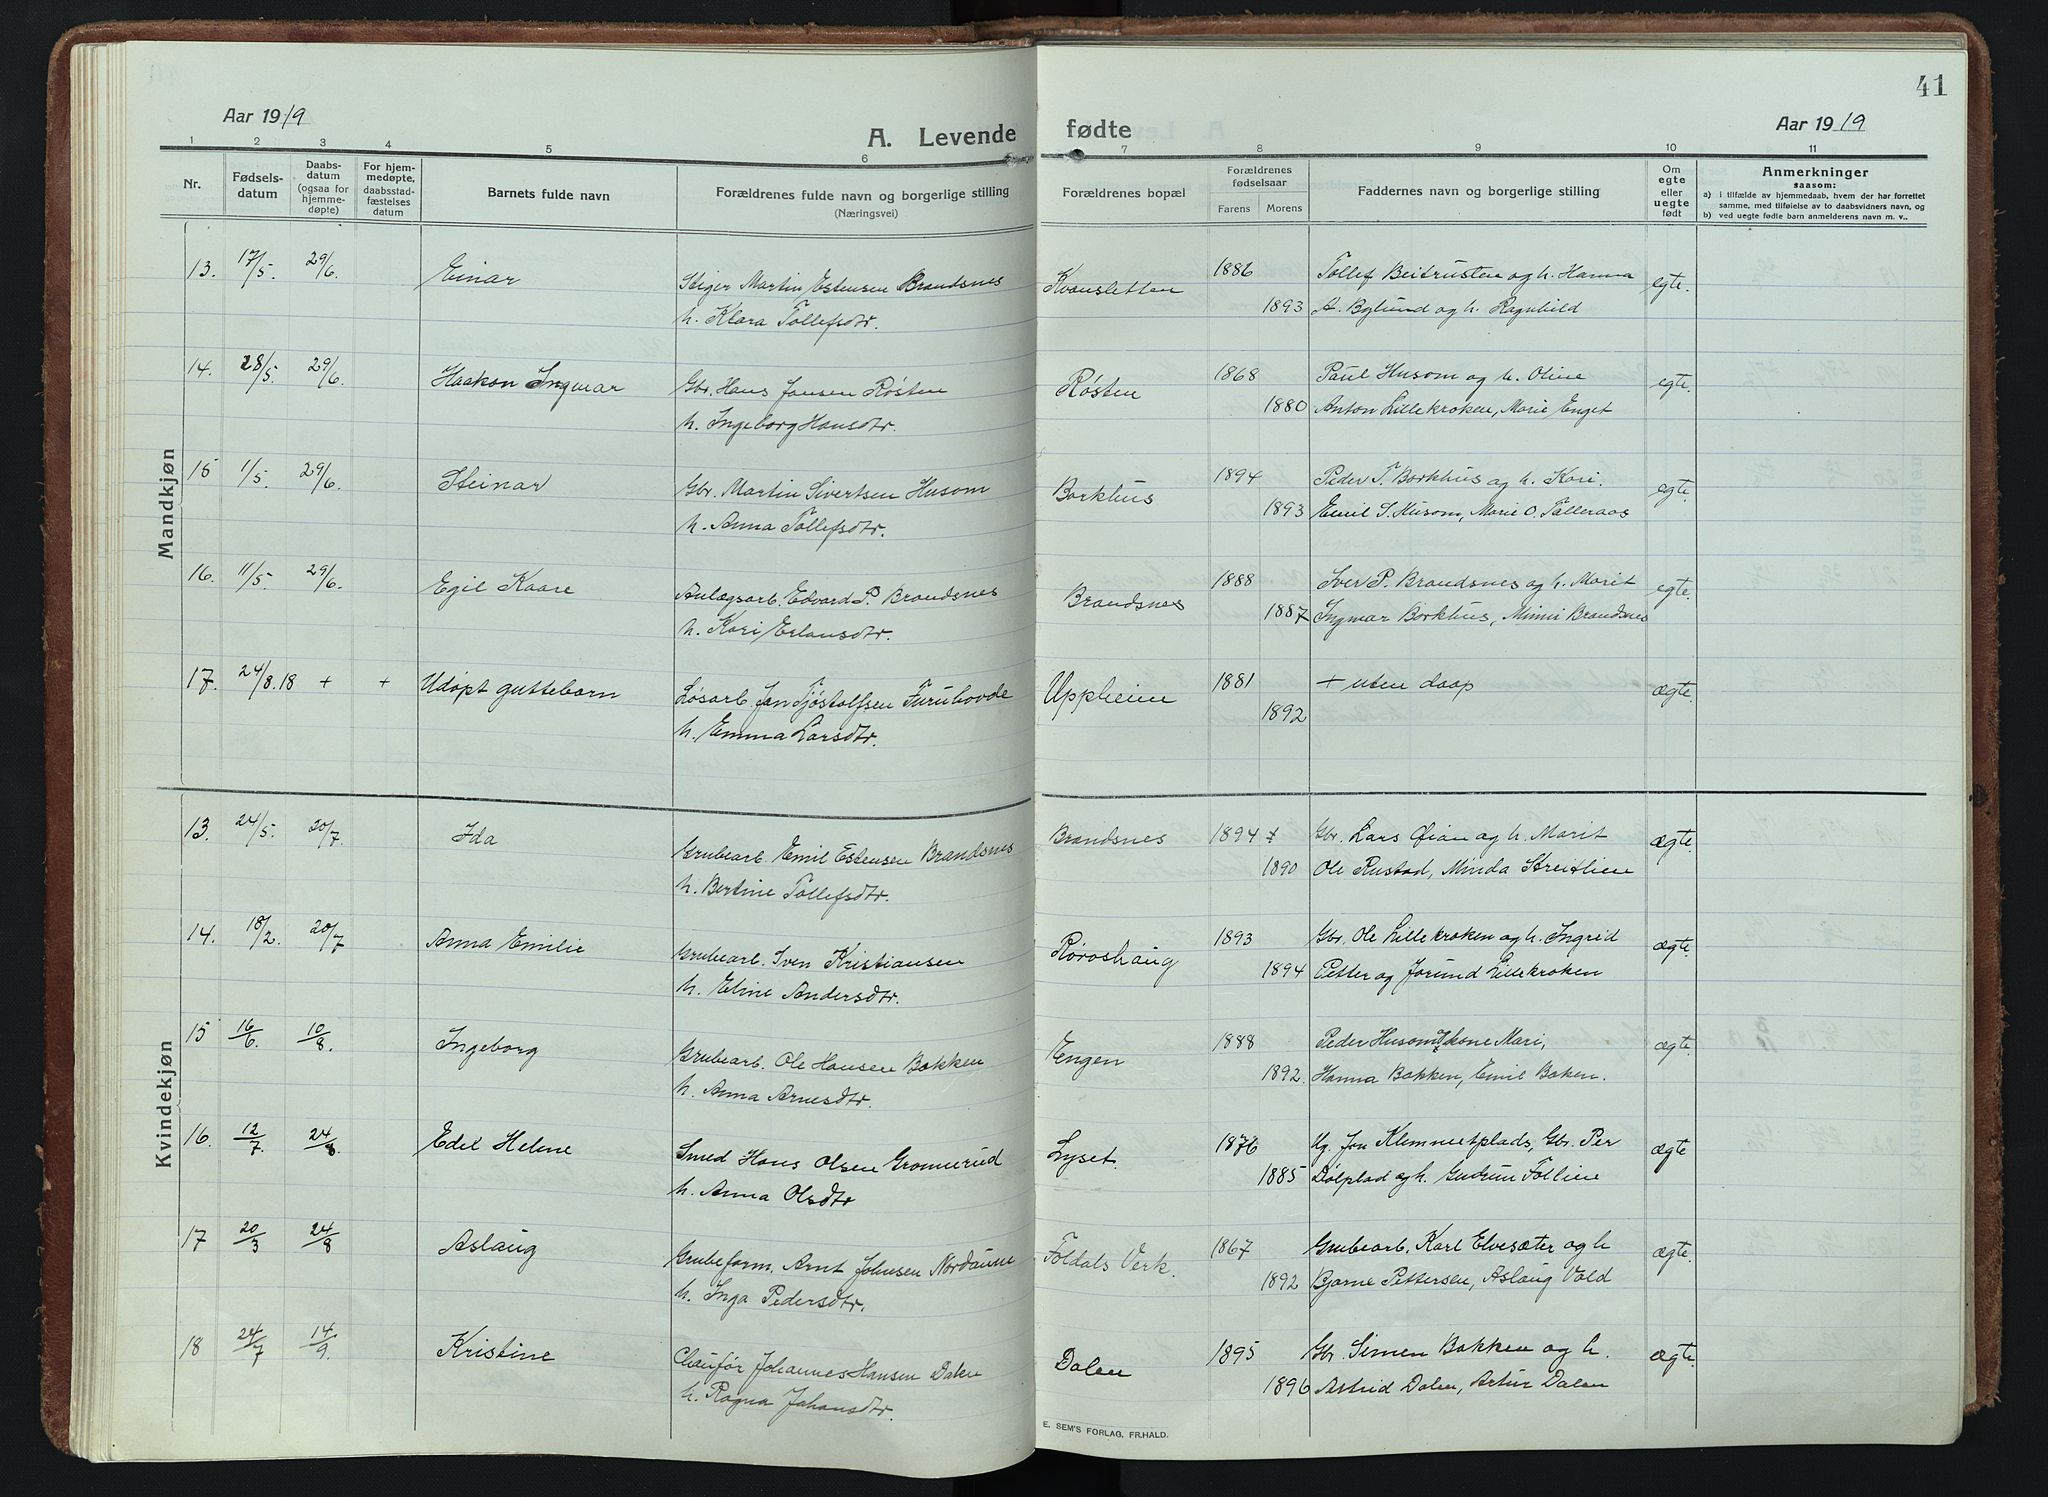 41
Aar 1919
A. Levende fødte
Aar 1919
1 2 3 4 5 6 7 8 9 10 11
Nr.
Fødsels-
datum
Daabs-
datum
(ogsaa for
hjemme-
døpte)
For hjem-
medøpte,
daabsstad-
fæstelses
datum
Barnets fulde navn
Forældrenes fulde navn og borgerlige stilling
(Næringsvei)
Forældrenes bopæl
Forældrenes
fødselsaar
Farens Morens
Faddernes navn og borgerlige stilling
Om
egte
eller
uegte
født
Anmerkninger
saasom:
a) i tilfælde av hjemmedaab, hvem der har forrettet
samme, med tilføielse av to daabsvidners navn, og
b) ved uegte fødte barn anmelderens navn m. v..
Mandkjøn
13. 17/5. 29/6. Einar Stiger Martin Estensen Brandsnes Kvænsletten 1886 Tollef Beitrusten og h. Hanna egte.
h. Klara Tollefsdtr. 1893 A. Bglund og h. Ragnhild
14. 28/5. 29/6. Haakon Ingmar Gbr. Hans Jansen Røsten Røsten 1868 Paul Husom og h. Oline egte.
h. Ingeborg Hansdtr. 1880 Anton Lillekroken, Marie Enget
15 1/5. 29/6. Steinar Gbr. Martin Sivertsen Husom Borkhus 1894 Peder T. Borkhus og h. Kari. egte.
h. Anna Tollefsdtr. 1893 Emil S. Husom, Marie O. Tolleraas
16. 11/5. 29/6. Egil Kaare Anlægsarb. Edvard P. Brandsnes Brandsnes 1888 Iver P. Brandsnes og h. Marit egte.
h. Kari Erlansdtr. 1887 Ingmar Borkhus, Mimmi Brandsnes
17. 24/8.18 + + Udøpt guttebarn Løsarb. Jan Tjøstolfsen Furuhovde Uppheim 1881 + uten daap ægte.
h. Emma Larsdtr. 1892
Kvindekjøn
13. 24/5. 20/7. Ida Grubearb. Emil Estensen Brandsnes Brandsnes 1894 + Gbr. Lars Øian og h. Marit ægte.
h. Bertine Tollefsdtr. 1890 Ole Rustad, Minda Streitlien
14. 18/2. 20/7 Anna Emilie Grubearb. Sven Kristiansen Røroshaug 1893 Gbr. Ole Lillekroken og h. Ingrid ægte.
h. Eline Andersdtr. 1894 Petter og Jorund Lillekroken
15 16/6. 10/8. Ingeborg Grubearb. Ole Hansen Bakken Engen 1888 Peder Husom & kone Mari, ægte.
h. Anna Arnesdtr. 1892. Hanna Bakken, Emil Baken.
16. 12/7. 24/8. Edel Helene Smed Hans Olsen Gronnerud Lyset. 1876 Ug. Jon Klemmetplads, Gbr. Per ægte
h. Anna Olsdtr 1885 Dølplad og h. Gudrun Follien
17 20/3 24/8 Aslaug Grubeform. Arnt Johnsen Nordaune Foldals Verk. 1867 Grubearb. Karl Elvesæter og h ægte.
h. Inga Pedersdtr. 1892 Bjarne Pettersen, Aslaug Vold
18 24/7 14/9. Kristine Chaufør Johannes Hansen Dalen Dalen 1895 Gbr. Simen Bakken og h. ægte.
h. Ragna Johansdtr. 1896 Astrid Dalen, Artur Dalen
E. SEM'S FORLAG, FR.HALD.